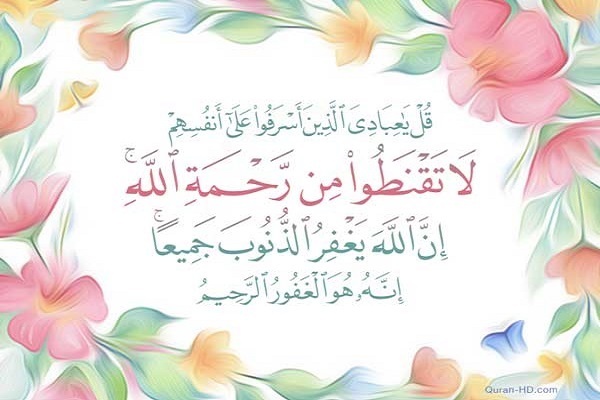 قُلْ يَٰعِبَادِىَ ٱلَّذِينَ أَسْرَفُوا۟ عَلَىٰٓ أَنفُسِهِمْ
لَا تَقْنَطُوا۟ مِن رَّحْمَةِ ٱللَّهِ ۚ
إِنَّ ٱللَّهَ يَغْفِرُ ٱلذُّنُوبَ جَمِيعًا ۚ
إِنَّهُۥ هُوَ ٱلْغَفُورُ ٱلرَّحِيمُ
Quran-HD.com